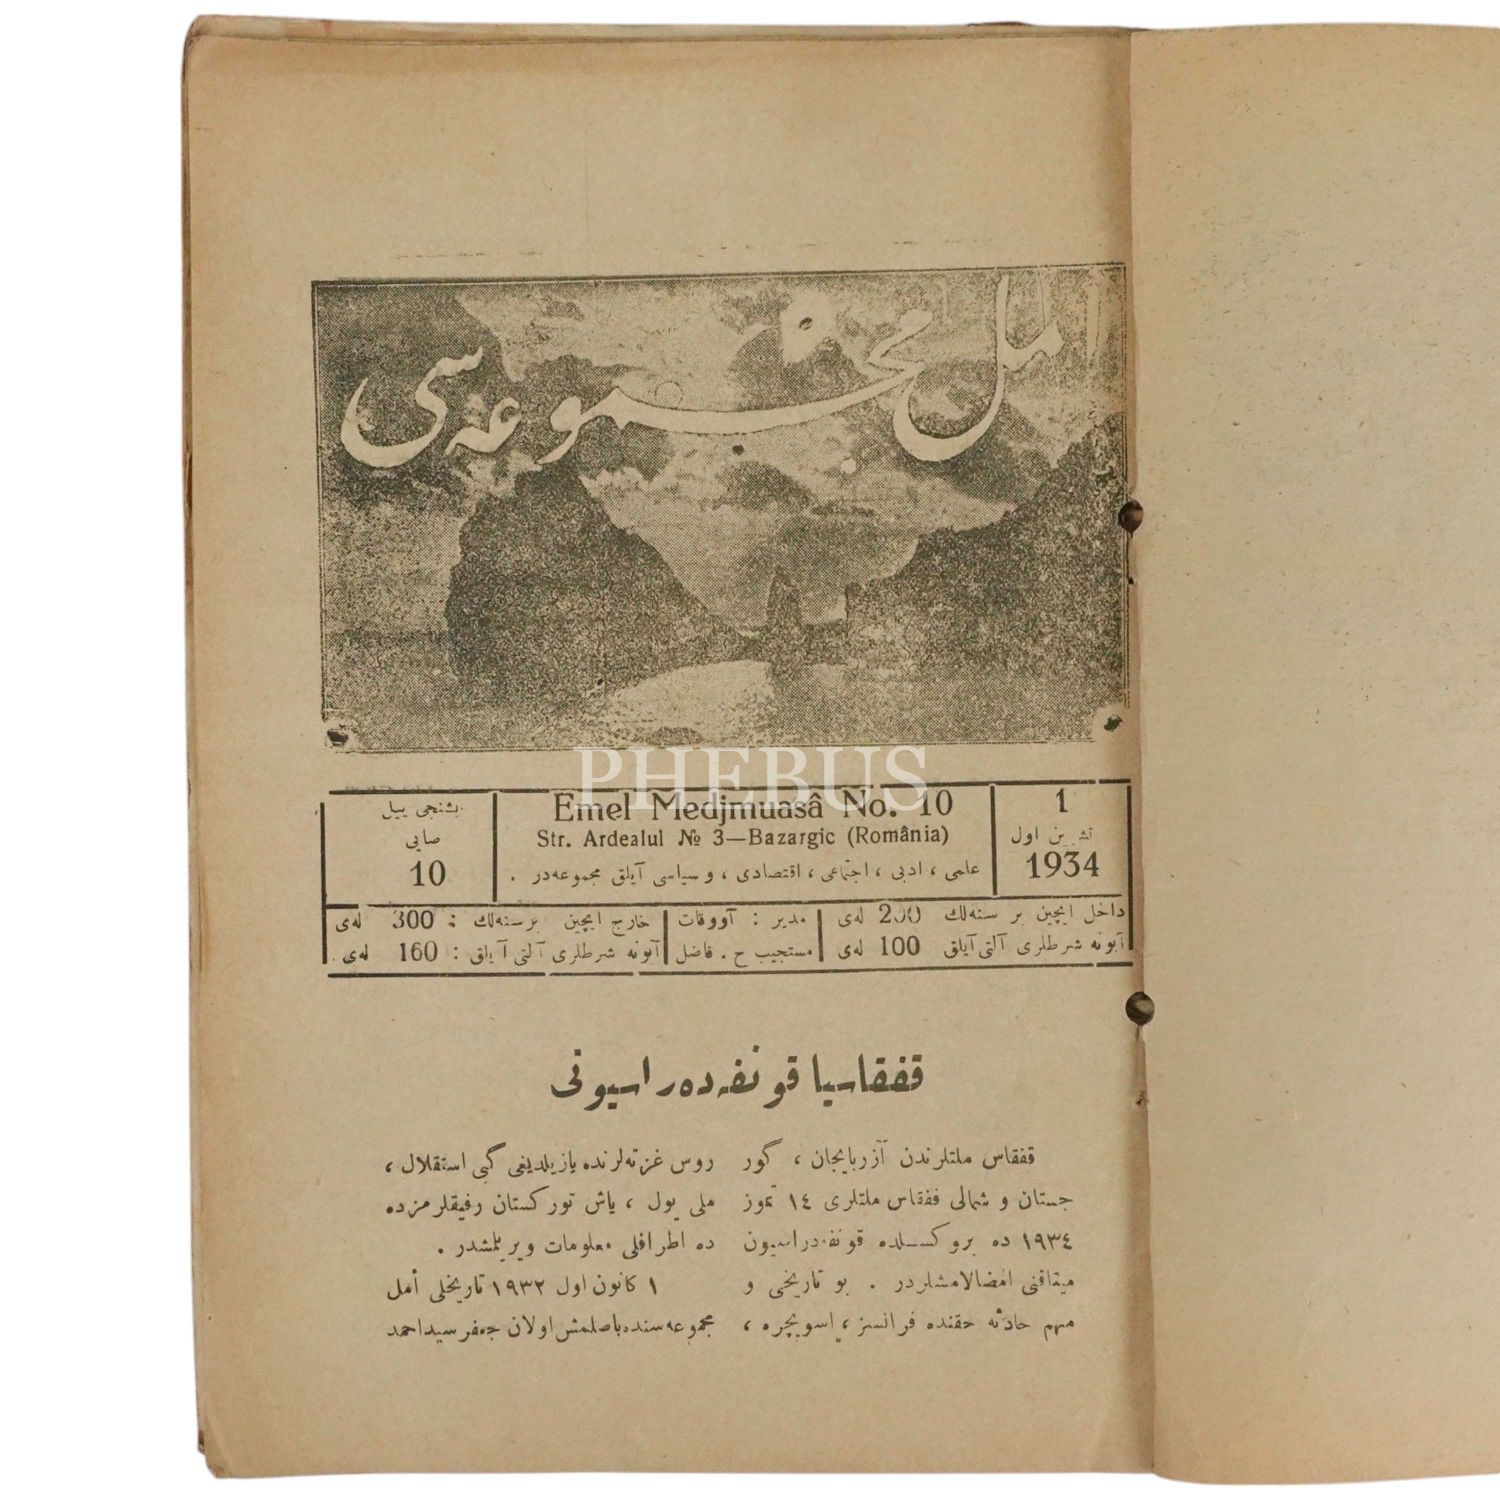 امل مجموعه‌سی
PHEBUS
بشنجی ییل
صایی
10
Emel Medjmuasâ No. 10
Str. Ardealul № 3—Bazargic (România)
علمی ، ادبی ، اجتماعی ، اقتصادی ، و سیاسی آیلق مجموعه‌در .
1
تشرین اول
1934
داخل ایچین بر سنه‌لك 200 له‌ی
آبونه شرطلری آلتی آیلق 100 له‌ی
مدیر : آووقات
مستجیب ح . فاضل
خارج ایچین برسنه‌لك : 300 له‌ی
آبونه شرطلری آلتی آیلق : 160 له‌ی .
قفقاسیا قونفه‌ده‌راسیونی
قفقاس ملتلرندن آزربایجان ، گور
جستان و شمالی قفقاس ملتلری ١٤ تموز
١٩٣٤ ده بروکسلده قونفدراسیون
میثاقنی امضالامشلردر . بو تاریخی و
مهم حادثه حقنده فرانسز ، اسویچره ،
روس غزته‌لرنده یازیلدیغی گبی استقلال ،
ملی یول ، یاش تورکستان رفیقلرمزده
ده اطرافلی معلومات ویریلمشدر .
١ کانون اول ١٩٣٢ تاریخلی أمل
مجموعه‌سنده باصلمش اولان جعفر سیداحمد